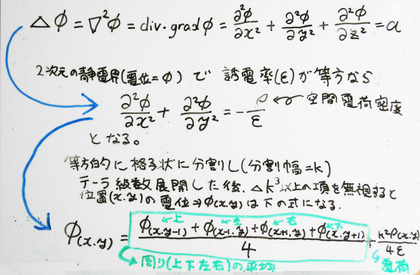 △φ = ∇²φ = div・gradφ = ∂²φ/∂x² + ∂²φ/∂y² + ∂²φ/∂z² = a
2次元の静電界(電位=φ)で 誘電率(ε)が等方なら
∂²φ/∂x² + ∂²φ/∂y² = -ρ/ε ←空間電荷密度
となる。
等方的に格子状に分割し(分割幅=k)
テーラ級数展開した後、△k³以上の項を無視すると
位置(x,y)の電位⇒φ(x,y)は下の式になる。
φ(x,y) = (φ(x,y-1) + φ(x-1,y) + φ(x+1,y) + φ(x,y+1))/4 + k²ρ(x,y)/4ε
上 左 右 下
周り(上下左右)の平均
電荷